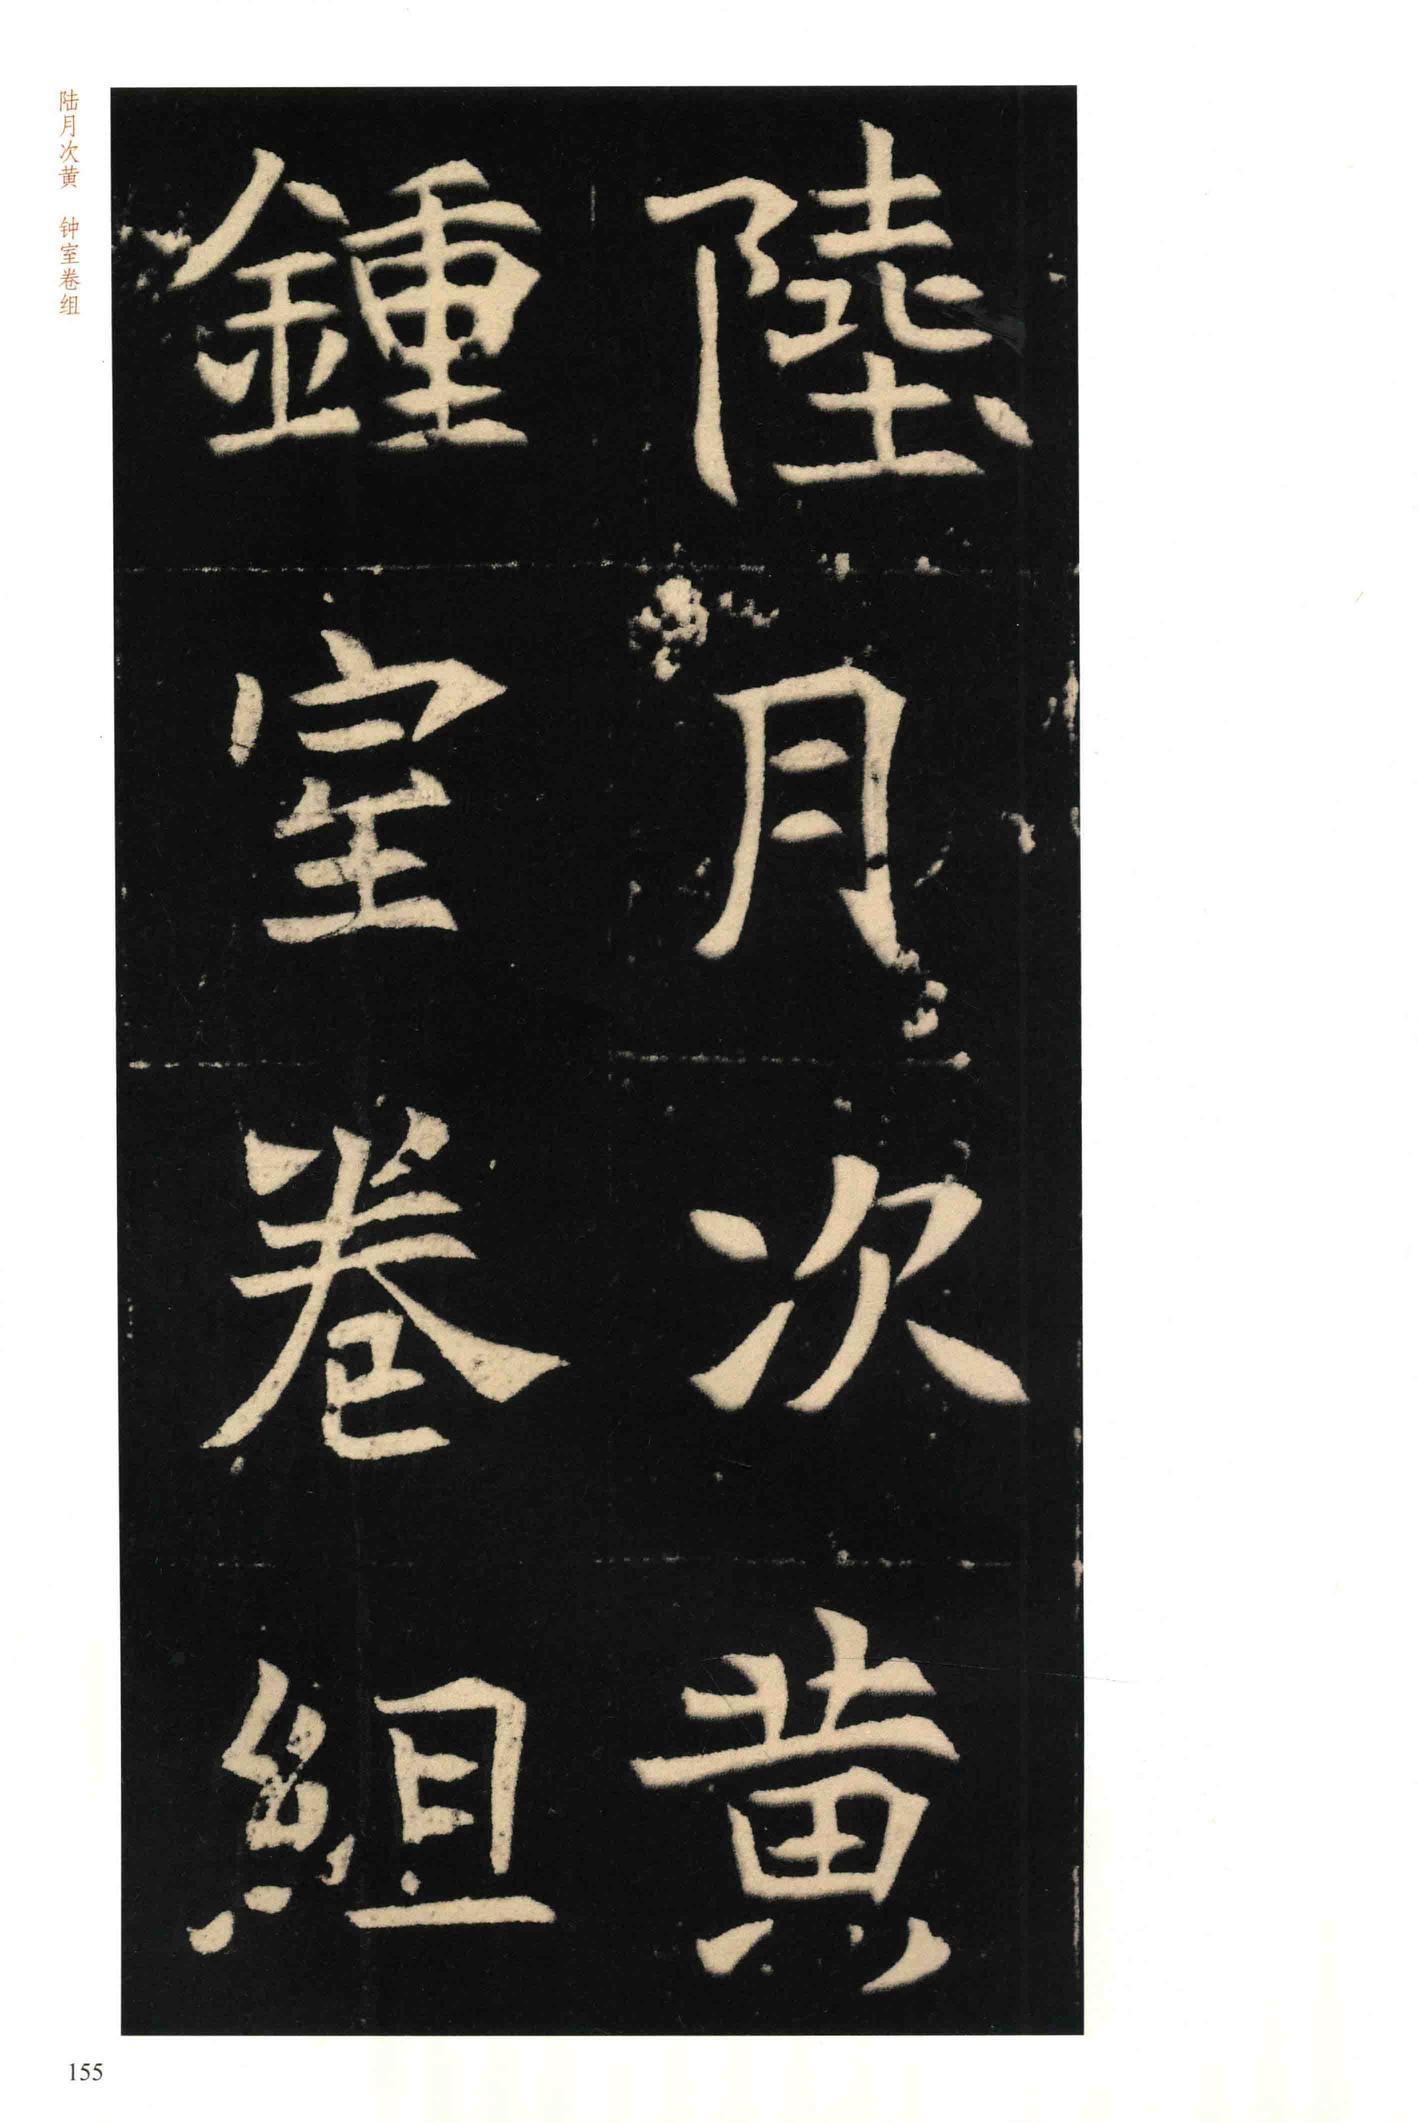 陸月次黄
鍾室卷組
陆月次黄　钟室卷组
155